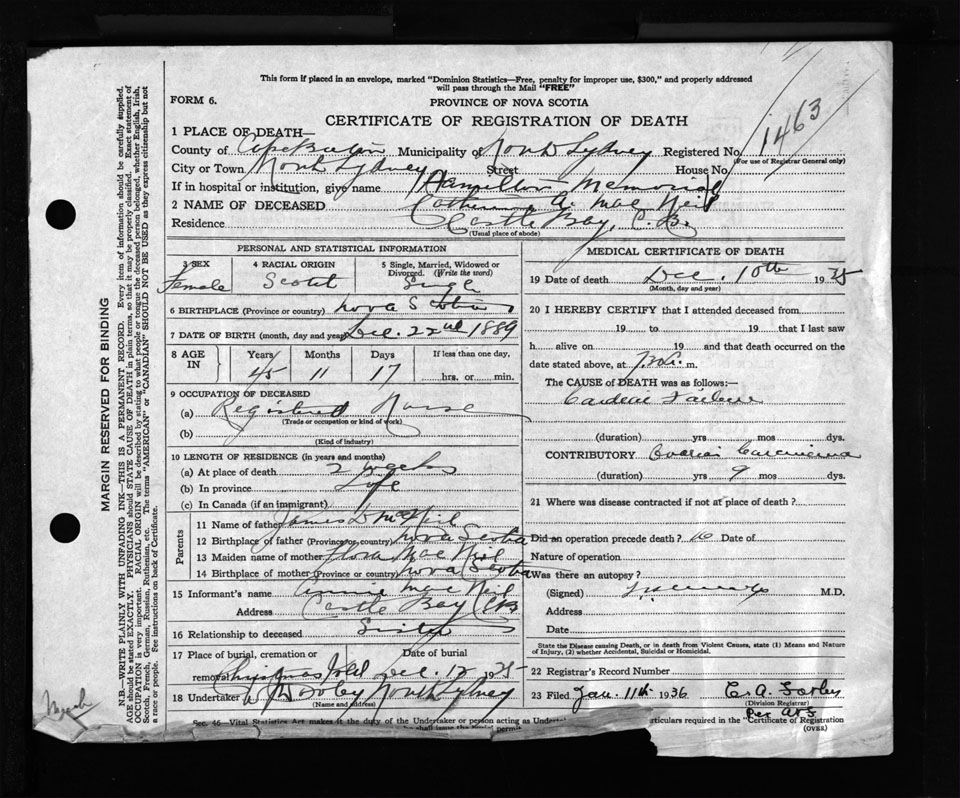 This form if placed in an envelope, marked "Dominion Statistics—Free, penalty for improper use, $300," and properly addressed
will pass through the Mail "FREE"
FORM 6.
PROVINCE OF NOVA SCOTIA
CERTIFICATE OF REGISTRATION OF DEATH
1463
1 PLACE OF DEATH—
County of Cape Breton Municipality of North Sydney Registered No.
(For use of Registrar General only)
City or Town North Sydney Street House No.
If in hospital or institution, give name Hamilton Memorial
2 NAME OF DECEASED Catherine A. Mac Neil
Residence Castle Bay, C.B.
(Usual place of abode)
PERSONAL AND STATISTICAL INFORMATION
3 SEX Female
4 RACIAL ORIGIN Scotch
5 Single, Married, Widowed or Divorced. (Write the word) Single
6 BIRTHPLACE (Province or country) Nova Scotia
7 DATE OF BIRTH (month, day and year) Dec. 22nd 1889
8 AGE IN Years 45 Months 11 Days 17 If less than one day, hrs. or min.
9 OCCUPATION OF DECEASED
(a) Registered Nurse
(Trade or occupation or kind of work)
(b)
(Kind of industry)
10 LENGTH OF RESIDENCE (in years and months)
(a) At place of death 2 weeks
(b) In province Life
(c) In Canada (if an immigrant)
Parents
11 Name of father James D McNeil
12 Birthplace of father (Province or country) Nova Scotia
13 Maiden name of mother Flora Mac Neil
14 Birthplace of mother (Province or country) Nova Scotia
15 Informant's name Annie Mac Neil
Address Castle Bay CB
16 Relationship to deceased Sister
17 Place of burial, cremation or Date of burial
removal Dec. 12 1935
18 Undertaker Dooley North Sydney
(Name and address)
MEDICAL CERTIFICATE OF DEATH
19 Date of death Dec. 10th 1935
(Month, day and year)
20 I HEREBY CERTIFY that I attended deceased from
19 to 19 that I last saw
h alive on 19 and that death occurred on the
date stated above, at m.
The CAUSE of DEATH was as follows:—
Cardiac Failure
(duration) yrs mos dys.
CONTRIBUTORY Ovarian Carcinoma
(duration) yrs 9 mos dys.
21 Where was disease contracted if not at place of death?
Did an operation precede death? Date of
Nature of operation
Was there an autopsy?
(Signed) M.D.
Address
Date
State the Disease causing Death, or in death from Violent Causes, state (1) Means and Nature
of Injury, (2) whether Accidental, Suicidal or Homicidal.
22 Registrar's Record Number
23 Filed Jan. 11th 1936
(Division Registrar)
per
Sec. 46—Vital Statistics Act makes it the duty of the Undertaker or person acting as Undert
articulars required in the "Certificate of Registration
(OVER)
MARGIN RESERVED FOR BINDING
N.B.—WRITE PLAINLY WITH UNFADING INK—THIS IS A PERMANENT RECORD. Every item of information should be carefully supplied.
AGE should be stated EXACTLY. PHYSICIANS should STATE CAUSE OF DEATH in plain terms, so that it may be properly classified. Exact statement of
OCCUPATION is very important. RACIAL ORIGIN will be described by stating to what people or tongue the deceased person belonged, whether English, Irish,
Scotch, French, German, Russian, Ruthenian, etc. The terms "AMERICAN" or "CANADIAN" SHOULD NOT BE USED as they express citizenship but not
a race or people. See instructions on back of Certificate.